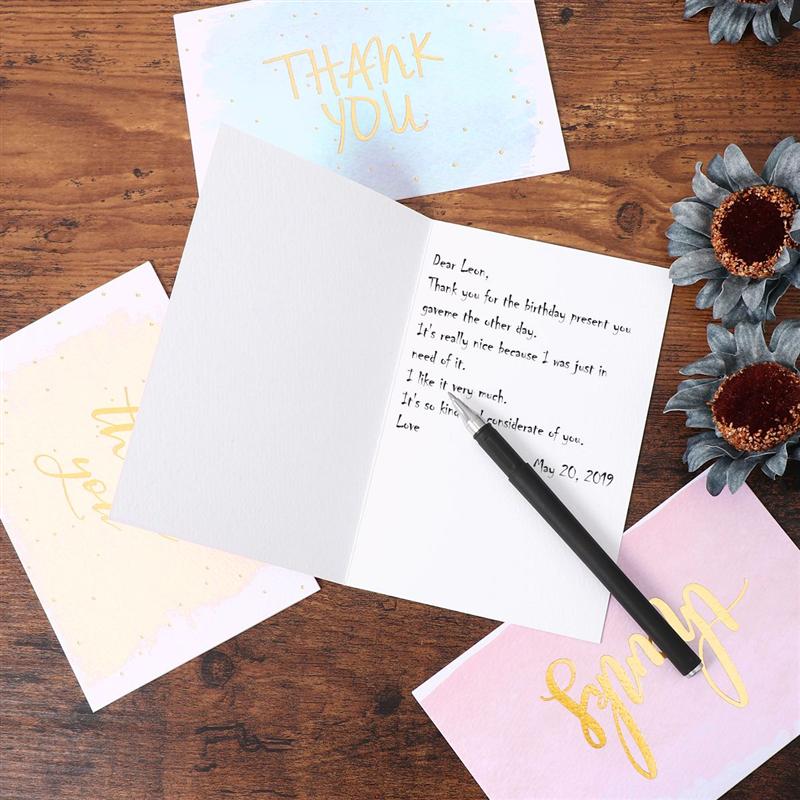 THANK
YOU
Dear Leon,
Thank you for the birthday present you
gaveme the other day.
It's really nice because I was just in
need of it.
I like it very much.
It's so considerate of you.
Love
May 20, 2019
you
thanks